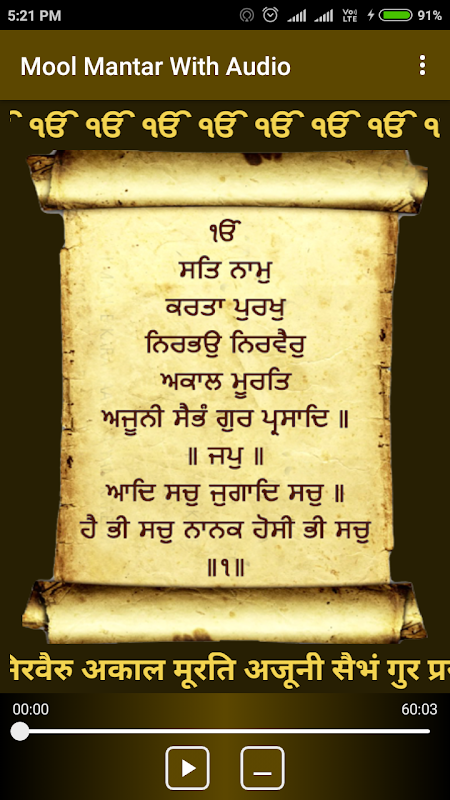 5:21 PM Vo) LTE 91%
Mool Mantar With Audio
ੴ ੴ ੴ ੴ ੴ ੴ ੴ
ੴ
ਸਤਿ ਨਾਮੁ
ਕਰਤਾ ਪੁਰਖੁ
ਨਿਰਭਉ ਨਿਰਵੈਰੁ
ਅਕਾਲ ਮੂਰਤਿ
ਅਜੂਨੀ ਸੈਭੰ ਗੁਰ ਪ੍ਰਸਾਦਿ ॥
॥ ਜਪੁ ॥
ਆਦਿ ਸਚੁ ਜੁਗਾਦਿ ਸਚੁ ॥
ਹੈ ਭੀ ਸਚੁ ਨਾਨਕ ਹੋਸੀ ਭੀ ਸਚੁ
॥੧॥
अकाल मूरति अजूनी सैभं गुर
00:00 60:03